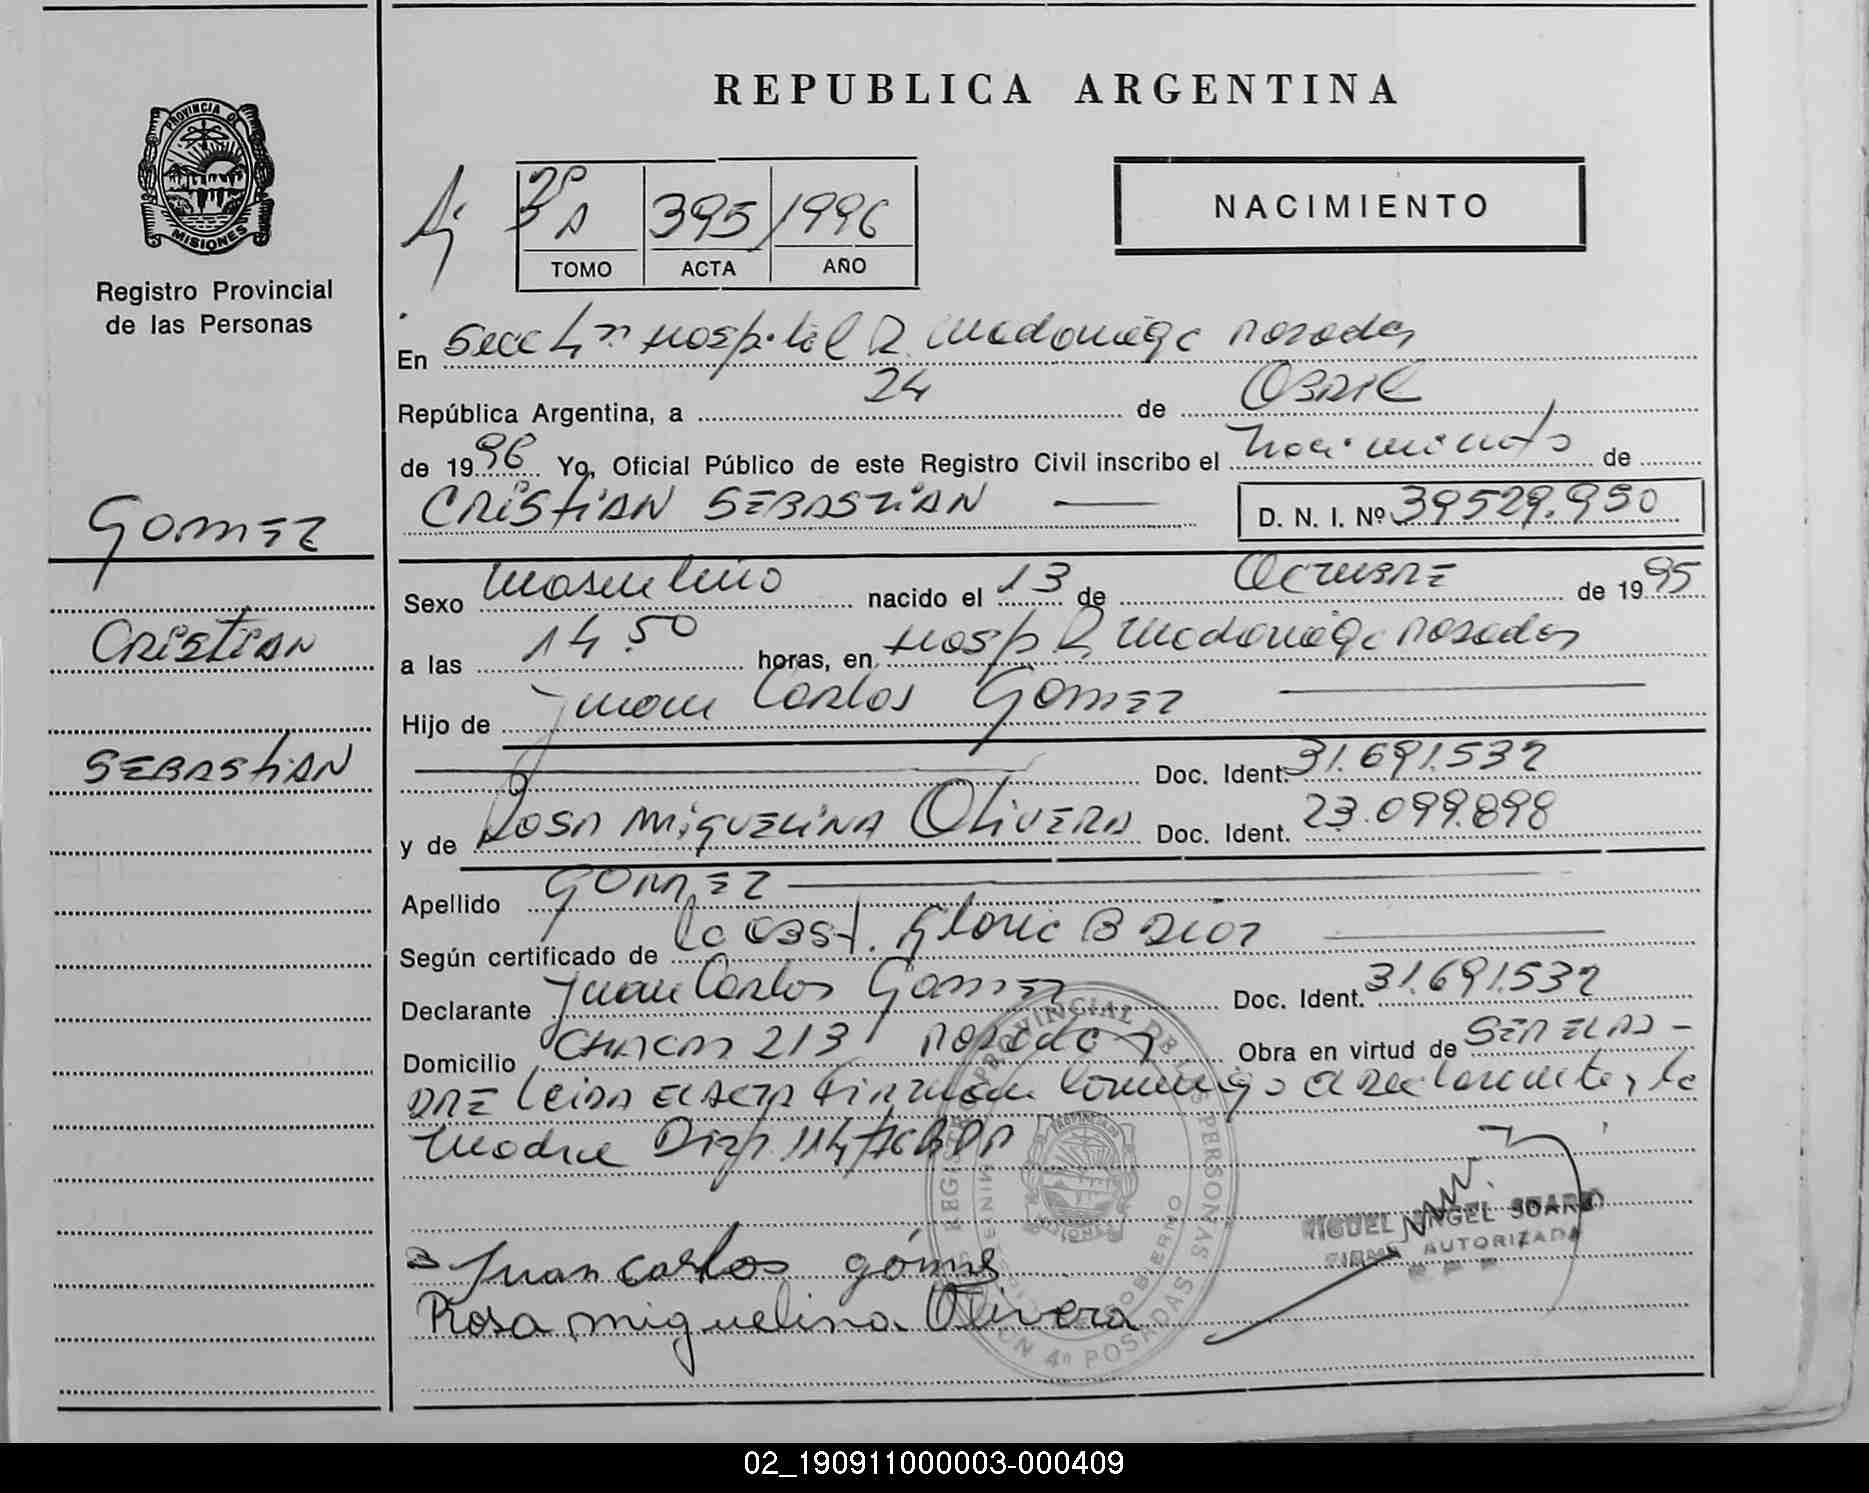 REPUBLICA ARGENTINA
PROVINCIA DE
MISIONES
Registro Provincial
de las Personas
395 1996
TOMO ACTA AÑO
NACIMIENTO
En Secc 4ª Hospital R. Madariaga Posadas
República Argentina, a 24 de Abril
de 1996 Yo, Oficial Público de este Registro Civil inscribo el nacimiento de
CRISTIAN SEBASTIAN D. N. I. Nº 39529.950
GOMEZ
CRISTIAN
SEBASTIAN
Sexo masculino nacido el 13 de Octubre de 1995
a las 14.50 horas, en Hosp R Madariaga Posadas
Hijo de Juan Carlos Gomez
Doc. Ident. 31.691.532
y de Rosa Miguelina Olivera Doc. Ident. 23.099.898
Apellido GOMEZ
Según certificado de la Obst. Gloria B
Declarante Juan Carlos Gomez Doc. Ident. 31.691.532
Domicilio Chacra 213 Posadas Obra en virtud de SER EL PA-
DRE Leida el acta firman conmigo el declarante y la
madre Disp. 114/
Juan Carlos góms
Rosa miguelina Olivera
REGISTRO PROVINCIAL DE LAS PERSONAS
4ª POSADAS
MIGUEL ANGEL SUAREZ
FIRMA AUTORIZADA
02_190911000003-000409